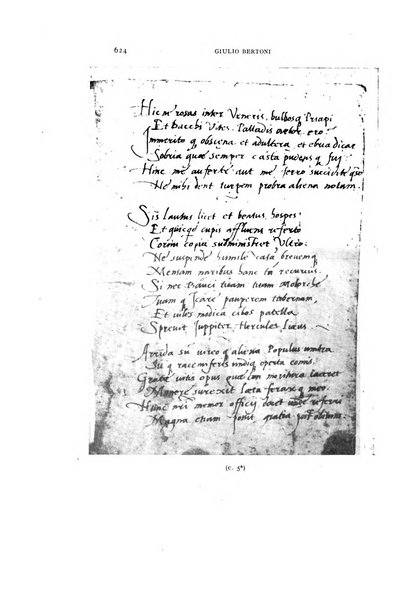 624
GIULIO BERTONI
Hic m' rosas inter Veneris, bulbosq Priapi
Et Bacchi Vites, Palladis arbor ero
Immerito q obscena, et adultera et ebria dicar
Sobria quae semper casta pudens q fui
Hinc me auferte aut me ferro succidite quaeso
Ne mihi dent turpem probra aliena notam.
Sis lautus licet et beatus hospes
Et quicq cupis affluens referto
Cornu copia subministret Ultro:
Ne suspende humile casa brevemq
Mensam naribus hanc recurvis
Si nec Bauci tuam tuam Molorche
Tuam q Icare pauperem tabernam,
Et viles modica cibos patella
Sprevit Iuppiter Hercules Lieus
Arrida su vireo q aliena Populus umbra
Su q racemiferis undiq operta comis.
vitis opus quae cum moritura iaceret
Munere surrexit laeta ferax q meo
Hunc memor officij docet referre
Magna etiam gratia post obitum.
(c. 5ª)